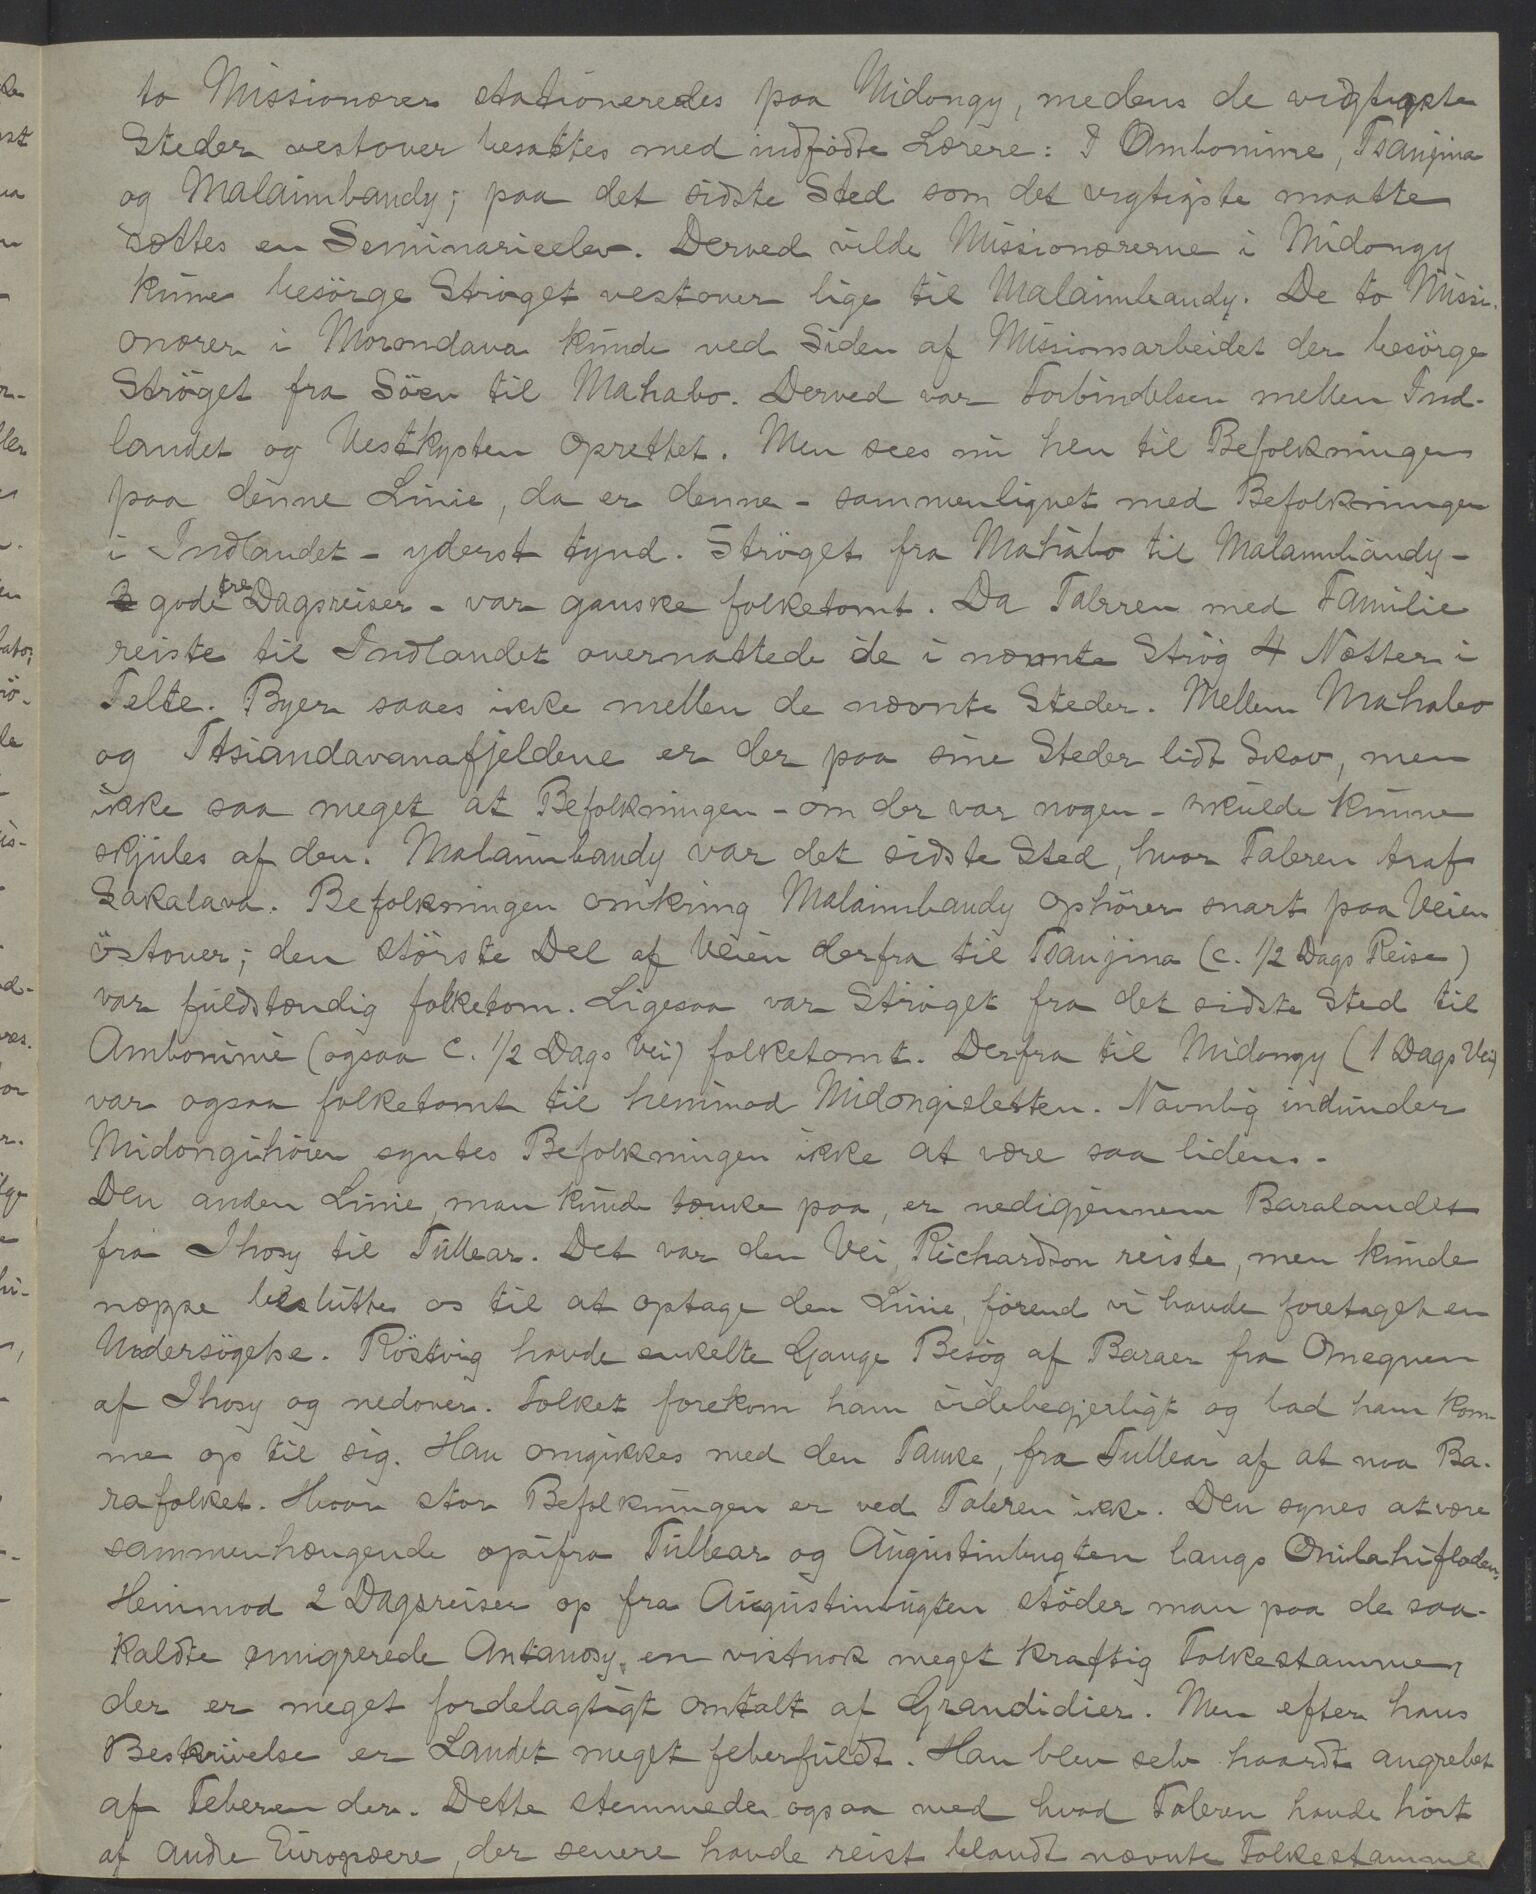 to Missionærer stationeredes paa Midongy, medens de vigtigste
Steder vestover besattes med indfødte Lærere: I Ambonime, Tsanjina
og Malaimbandy; paa det sidste Sted som det vigtigste maatte
sættes en Seminarieelev. Derved vilde Missionærerne i Midongy
kunne besörge Ströget vestover lige til Malaimbandy. De to Missi-
onærer i Morondava kunde ved Siden af Missionsarbeidet der besörge
Ströget fra Söen til Mahabo. Derved var Forbindelsen mellem Ind-
landet og Vestkysten oprettet. Men sees nu hen til Befolkningen
paa denne Linie, da er denne - sammenlignet med Befolkningen
i Indlandet - yderst tynd. Ströget fra Mahabo til Malaimbandy -
gode tre Dagsreiser - var ganske folketomt. Da Taleren med Familie
reiste til Indlandet overnattede de i nævnte Strög 4 Nætter i
Telte. Byer saaes ikke mellem de nævnte Steder. Mellem Mahabo
og Ttsiandavanafjeldene er der paa sine Steder lidt Skov, men
ikke saa meget at Befolkningen - om der var nogen - skulde kunne
skjules af den. Malaimbandy var det sidste Sted, hvor Taleren traf
Sakalava. Befolkningen omkring Malaimbandy ophörer snart paa Veien
östover; den störste Del af Veien derfra til Tsanjina (c. 1/2 Dags Reise)
var fuldstændig folketom. Ligesaa var Ströget fra det sidste Sted til
Ambonimie (ogsaa c. 1/2 Dags Vei) folketomt. Derfra til Midongy (1 Dags Vei)
var ogsaa folketomt til henimod Midongisletten. Navnlig indunder
Midongihöien syntes Befolkningen ikke at være saa liden. -
Den anden Linie, man kunde tænke paa, er nedigjennem Baralandet
fra Ihosy til Tullear. Det var den Vei, Richardson reiste, men kunde
næppe beslutte os til at optage den Linie, förend vi havde foretaget en
Undersögelse. Röstvig havde enkelte Gange Besög af Baraer fra Omegnen
af Ihosy og nedover. Folket forekom ham videbegjerligt og bad ham kom-
me op til sig. Han omgikkes med den Tanke, fra Tullear af at naa Ba-
rafolket. Hvor stor Befolkningen er ved Taleren ikke. Den synes at være
sammenhængende opifra Tullear og Augustinbugten langs Onilahifloden.
Henimod 2 Dagsreiser op fra Augustinbugten stöder man paa de saa-
kaldte emigrerede Antanosy, en vistnok meget kraftig Folkestamme,
der er meget fordelagtigt omtalt af Grandidier. Men efter hans
Beskrivelse er Landet meget feberfuldt. Han blev selv haardt angrebet
af Feberen der. Dette stemmede ogsaa med hvad Taleren havde hört
af andre Europæere, der senere havde reist blandt nævnte Folkestamme